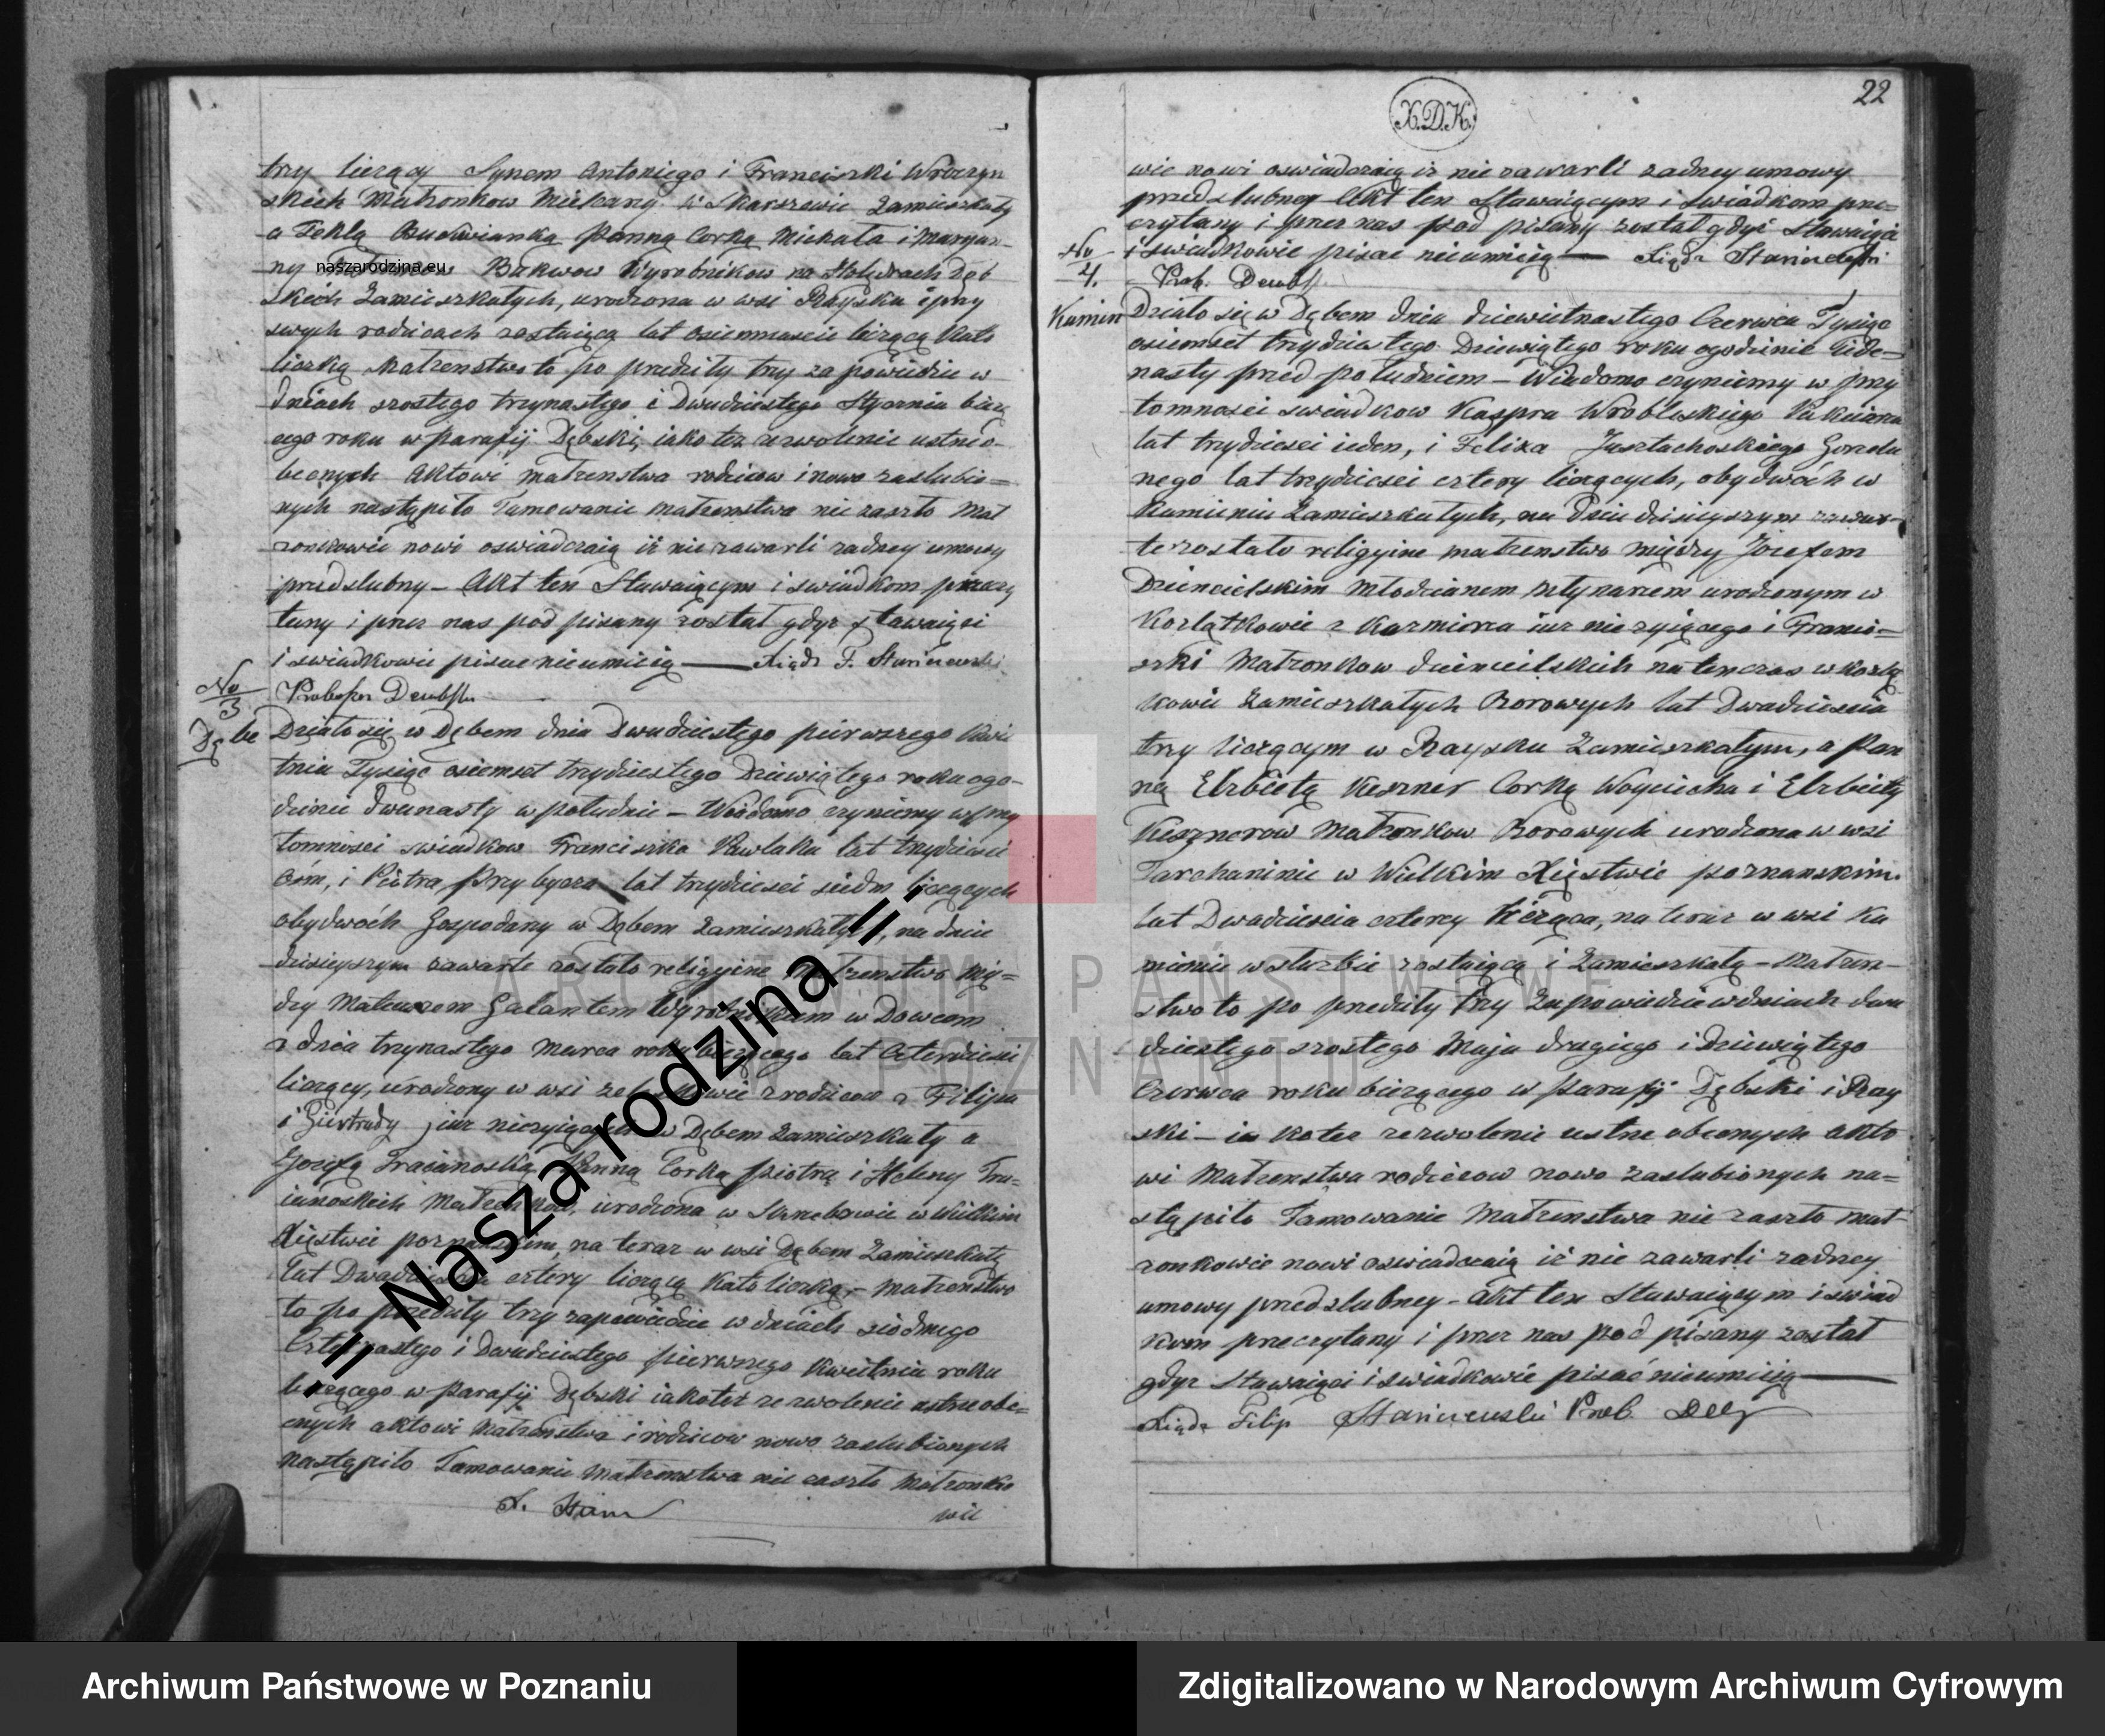 try liczący Synem Antoniego i Franciszki Wroczyn
skich Małżonkow Zamieszkały
a Teklą Panną Corką Michała i Maryan-
ny Bukwow Wyrobnikow na Holędrach Dęb
skich Zamieszkałych, urodzona w wsi Raysku i przy
swych rodzicach zostaiącą lat osiemnaście liczącą Kato
liczką Małzenstwo to po przedziły trzy zapowiedzie w
dniach szostego trzynastego i Dwudziestego Stycznia bieżą
cego roku w parafij Dębski, iako tez zezwolenie ustnie o-
becnych Aktowi małzenstwa rodzicow i nowo zaslubio=
nych nastąpiło Tamowanie małzenstwa nie zaszło Mał
zonkowie nowi oswiadczaią iż nie zawarli zadney umowy
przedslubny – Akt ten Stawaiącym i swiadkom przeczy
tany i przez nas pod pisany został gdyz stawaiący
i swiadkowie pisac nieumieią — Xiądz F. Staniszewski
No
3
Dębe
Działo się w Dębem dnia Dwudziestego pierwszego Kwie
tnia Tysiąc osiemset trzydziestego Dziewiątego roku ogo-
dzinie dwunasty w południe – Wiadomo czyniemy w przy
tomnosci swiadkow Franciszka Pawlaka lat trzydziesci
osm, i Piotra Przybycza lat trzydziesci siedm liczących
obydwoch Gospodarzy w Dębem zamieszkałych, na dniu
dzisieyszym zawarte zostało religyine Małzenstwo mię=
dzy Mateuszem Galantem Wyrobnikiem w Dowcem
z dnia trzynastego Marca roku bieżącego lat Czterdziesci
liczący, urodzony w wsi z rodzicow z Filipa
i Giertrudy iuz niezyiących w Dębem zamieszkały a
Jozefą Traianoską Panną Corką Piotra i Heleny Tra=
ianoskich Małzonkow, urodzona w w Wielkim
Xięstwie poznanskim, na teraz w wsi Dębem Zamieszkałą
lat Dwadziescia cztery liczącą Katoliczką – Małzenstwo
to po przedziły trzy zapowiedzie w dniach siodmego
Czternastego i Dwudziestego pierwszego Kwietnia roku
bieżącego w parafij Dębski iakotez zezwolenie ustne obe=
cnych aktowi Małzenstwa i rodzicow nowo zaslubionych
nastąpiło Tamowanie Małzenstwa nie zaszło Małzonko
wie
X.D.K.
22
wie nowi oswiadczaią iz nie zawarli zadney umowy
przedslubney Akt ten Stawaiącym i Swiadkom prze=
czytany i przez nas pod pisany został gdyz Stawaiący
i swiadkowie pisac nieumieią — Xiądz Staniszewski
Prob.
No
4.
Kamin
Działo się w Dębem dnia dziewietnastego Czerwca Tysiąc
osiemset trzydziestego Dziewiątego roku ogodzinie Iede=
nasty przed południem – Wiadomo czyniemy w przy
tomnosci swiadkow Kaspra Wroblskiego
lat trzydziesci ieden, i Felixa Gorzela
nego lat trzydziesci cztery liczących, obydwóch w
Kamieniu Zamieszkałych, na dniu dzisieyszym zawar-
te zostało religyine małzenstwo między Jozefem
Dziencielskim Młodzianem młynarzem urodzonym w
Kozlątkowie z Kazmierza iuz nie zyiącego i Franci=
szki Małzonkow dziencielskich natenczas w Kozlą
kowie Zamieszkałych Borowych lat Dwadziescia
trzy liczącym w Raysku Zamieszkałym, a Pan
ną Elzbietą Keszner Corką Woyciecha i Elzbiety
Kesznerow Małzonkow Borowych urodzona w wsi
w Wielkim Xięstwie poznanskim.
lat Dwadziescia cztery licząca, na teraz w wsi Ka
mieniu w służbie zostaiącą i Zamieszkałą – Małzen-
stwo to po przedziły trzy Zapowiedzie w dniach dwu
dziestego szostego Maja drugiego i Dziewiątego
Czerwca roku bieżącego w parafij Dębski i Ray
ski – iakotez zezwolenie ustne obecnych akto
wi Małzenstwa rodzicow nowo zaslubionych na=
stąpiło Tamowanie Małzenstwa nie zaszło Mał
zonkowie nowi oswiadczaią iż nie zawarli zadney
umowy przedslubney – Akt ten Stawaiącym i swiad
kom przeczytany i przez nas pod pisany został
gdyz stawaiący i swiadkowie pisać nieumieią —
Xiądz Filip Staniszewski Prob.
naszarodzina.eu
.:: Nasza rodzina ::.
ARCHIWUM PAŃSTWOWE
POZNANIU
Archiwum Państwowe w Poznaniu
Zdigitalizowano w Narodowym Archiwum Cyfrowym